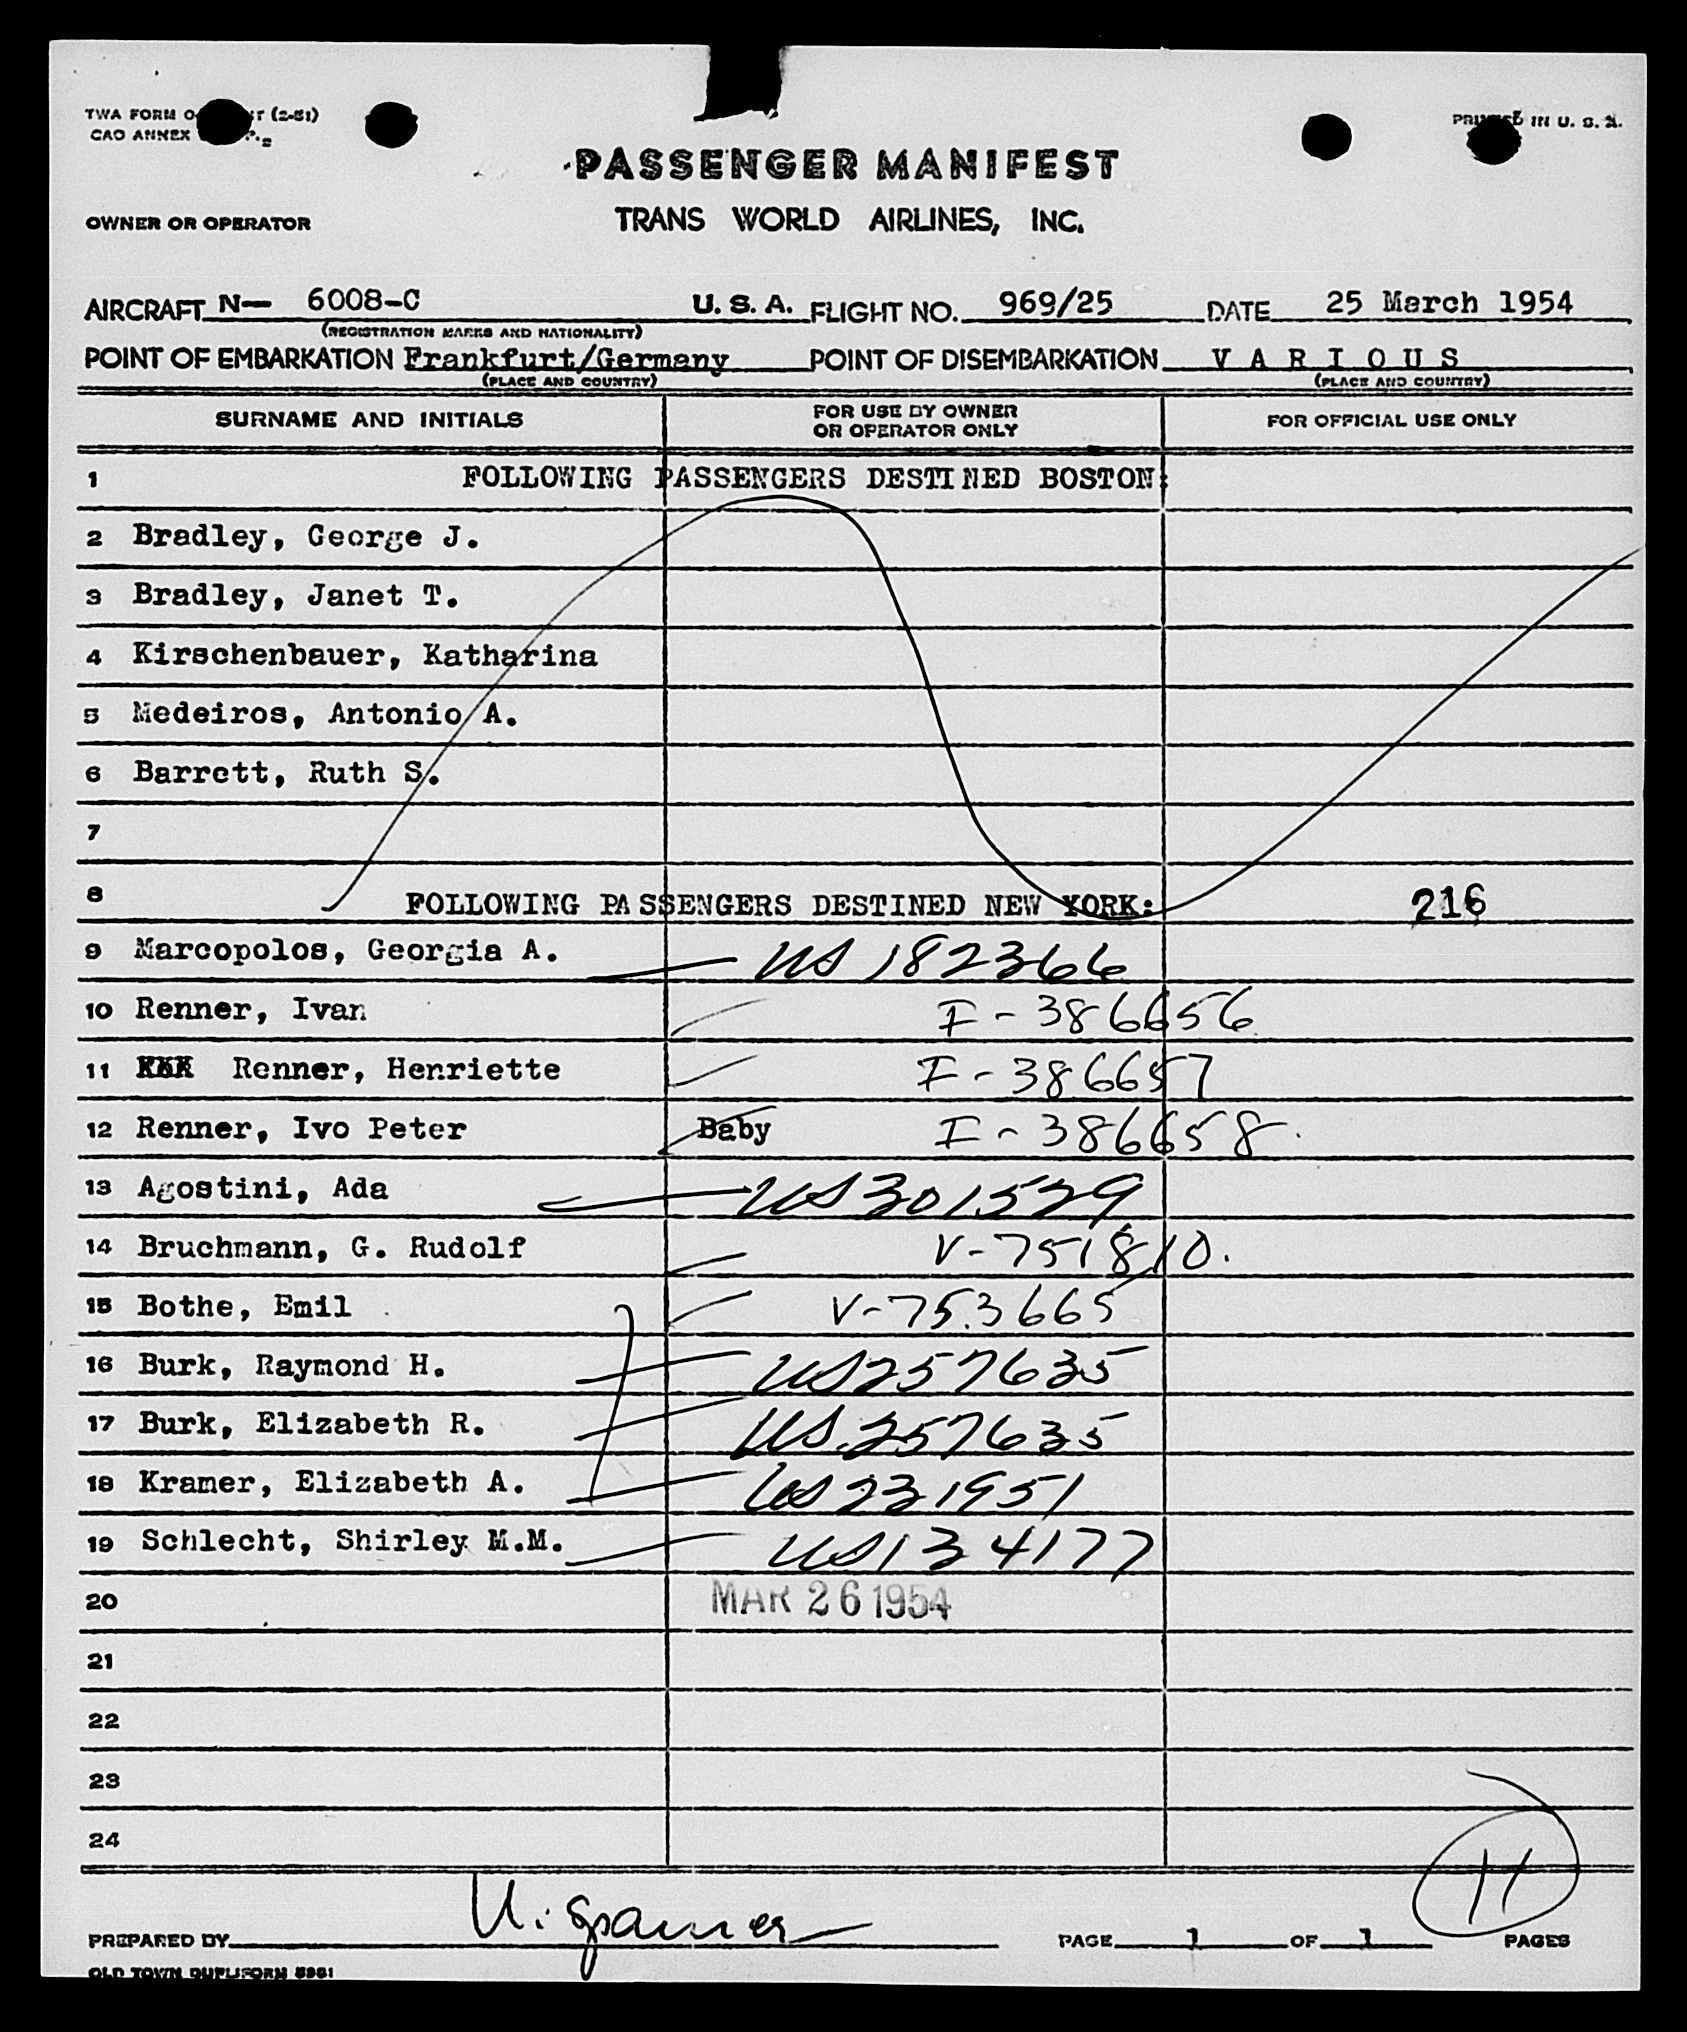 TWA FORM O T (2-51)
CAO ANNEX
PRINTED IN U. S. A.
PASSENGER MANIFEST
OWNER OR OPERATOR TRANS WORLD AIRLINES, INC.
AIRCRAFT N— 6008-C U. S. A. FLIGHT NO. 969/25 DATE 25 March 1954
(REGISTRATION MARKS AND NATIONALITY)
POINT OF EMBARKATION Frankfurt/Germany POINT OF DISEMBARKATION V A R I O U S
(PLACE AND COUNTRY) (PLACE AND COUNTRY)
SURNAME AND INITIALS FOR USE BY OWNER OR OPERATOR ONLY FOR OFFICIAL USE ONLY
1 FOLLOWING PASSENGERS DESTINED BOSTON:
2 Bradley, George J.
3 Bradley, Janet T.
4 Kirschenbauer, Katharina
5 Medeiros, Antonio A.
6 Barrett, Ruth S.
7
8 FOLLOWING PASSENGERS DESTINED NEW YORK: 216
9 Marcopolos, Georgia A. US 182366
10 Renner, Ivan I-386656
11 Renner, Henriette I-386657
12 Renner, Ivo Peter Baby I-386658
13 Agostini, Ada US 301529
14 Bruchmann, G. Rudolf V-751810.
15 Bothe, Emil V-753665
16 Burk, Raymond H. US257635
17 Burk, Elizabeth R. US 257635
18 Kramer, Elizabeth A. US 231951
19 Schlecht, Shirley M.M. US134177
20 MAR 26 1954
21
22
23
24
11
PREPARED BY PAGE 1 OF 1 PAGES
OLD TOWN DUPLIFORM 5961